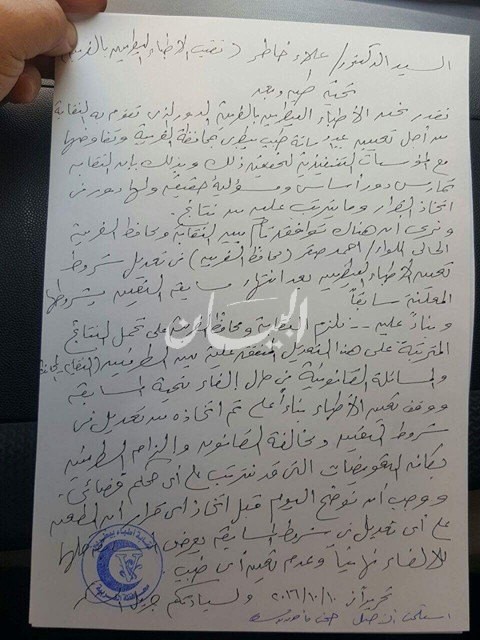 السيد الدكتور/ علاء خاطر (نقيب الأطباء البيطريين بالغربية
تحية طيبة وبعد
نقدر نحن الأطباء البيطريين بالغربية الدور الذى تقوم به النقابة
من أجل تعيين مائة طبيب بيطرى بمحافظة الغربية وتفاوضها
مع المؤسسات التنفيذية لتحقيق ذلك وبذلك فإن النقابة
تمارس دور أساسى ومسؤلية حقيقية ولها دور فى
اتخاذ القرار وما يترتب عليه من نتائج.
ونرى أن هناك توافقد تام بين النقابة ومحافظ الغربية
الحالى اللواء/ أحمد صقر (محافظ الغربية) فى تعديل شروط
تعيين الأطباء البيطريين بعد انتهاء مسابقة التعيين بشروطها
المعلنة سابقاً
وبناءً عليه --- نلزم النقابة ومحافظ الغربية على تحمل النتائج
المترتبة على هذا التعديل المتفق عليه بين الطرفين
والمسائلة القانونية فى حال إلغاء نتيجة المسابقة
ووقف تعيين الأطباء بناءً على تم اتخاذه من تعديل فى
شروط التعيين ومخالفة القانون وإلزام الطرفين
بكافة التعويضات التى قد تترتب على أى حكم قضائى.
ووجب أن نوضح اليوم قبل اتخاذ أى قرار أن الطعن
على أى تعديل فى شروط المسابقة يعرض
للإلغاء نهائياً وعدم تعيين أى طبيب
تحريراً فى ١٠/١٠/٢٠١٦ ولسيادتكم جزيل
البيان